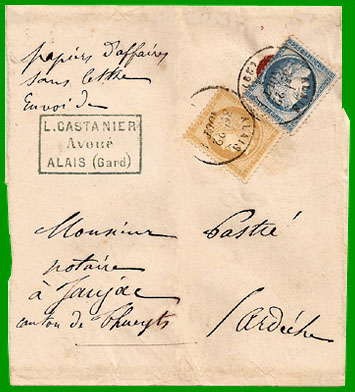 papiers d'affaires
sans lettre
Envoi de
L. CASTANIER
Avoué
ALAIS (Gard)
ALAIS
Monsieur Pastré
notaire
à Jaujac
canton de Thueyts
l'ardèche